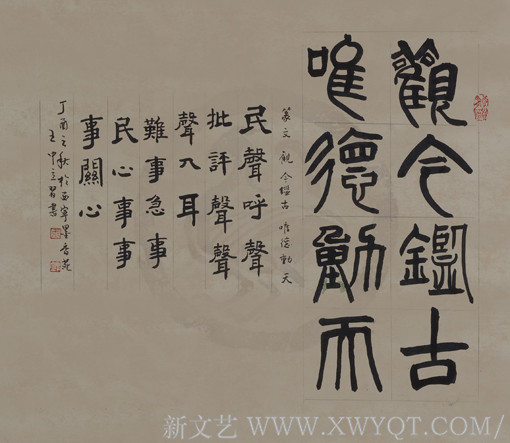 觀今鑑古
唯德動天
篆文 觀今鑑古 唯德動天
民聲呼聲
批評聲聲
聲入耳
難事急事
民心事事
事關心
丁酉之秋於西寧墨香苑
王立習書
新文艺 WWW.XWYQT.COM